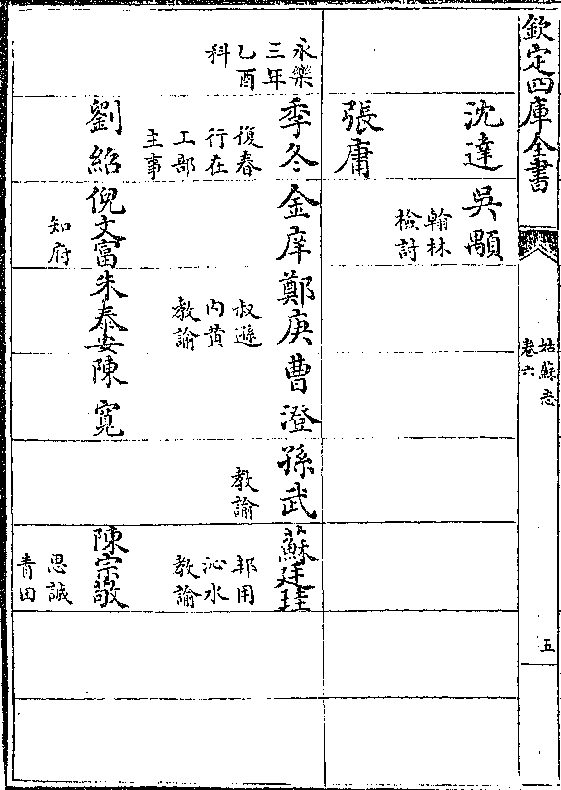 欽定四庫全書
姑蘇志
卷六
五
沈達
吳顒
翰林
檢討
張庸
永樂
三年
乙酉
科
季冬
復春
行在
工部
主事
金庠
鄭庚
叔遜
內黃
教諭
曹澄
孫武
教諭
蘇廷珪
邦用
沁水
教諭
劉紹
倪文富
知府
朱泰安
陳寬
陳宗敬
思誠
青田